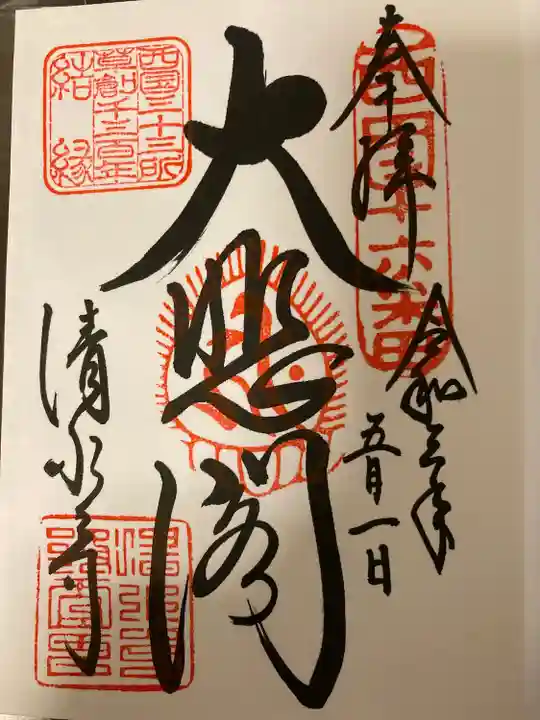 奉拝
西国十六番
令和三年
五月一日
大悲閣
西国三十三所
草創千三百年
結縁
清水寺